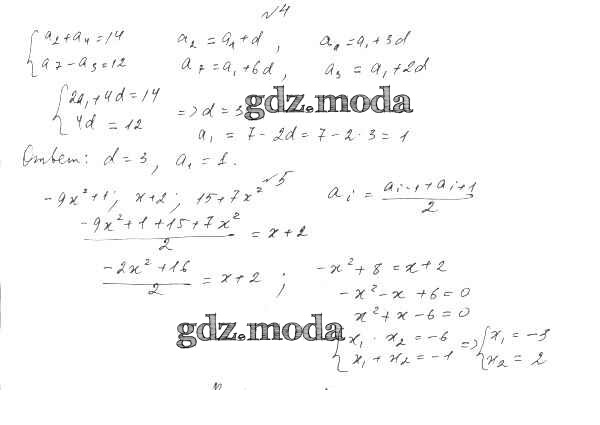 √4
{a₂+a₄=14   a₂=a₁+d,   a₄=a₁+3d
{a₇-a₃=12   a₇=a₁+6d,   a₃=a₁+2d
{2a₁+4d=14
{4d=12   => d=3
gdz.moda
a₁=7-2d=7-2·3=1
Ответ: d=3, a₁=1.
√5
-9x²+1; x+2; 15+7x²   aᵢ=(aᵢ₋₁+aᵢ₊₁)/2
(-9x²+1+15+7x²)/2=x+2
(-2x²+16)/2=x+2;   -x²+8=x+2
-x²-x+6=0
x²+x-6=0
gdz.moda
{x₁·x₂=-6   => {x₁=-3
{x₁+x₂=-1   {x₂=2